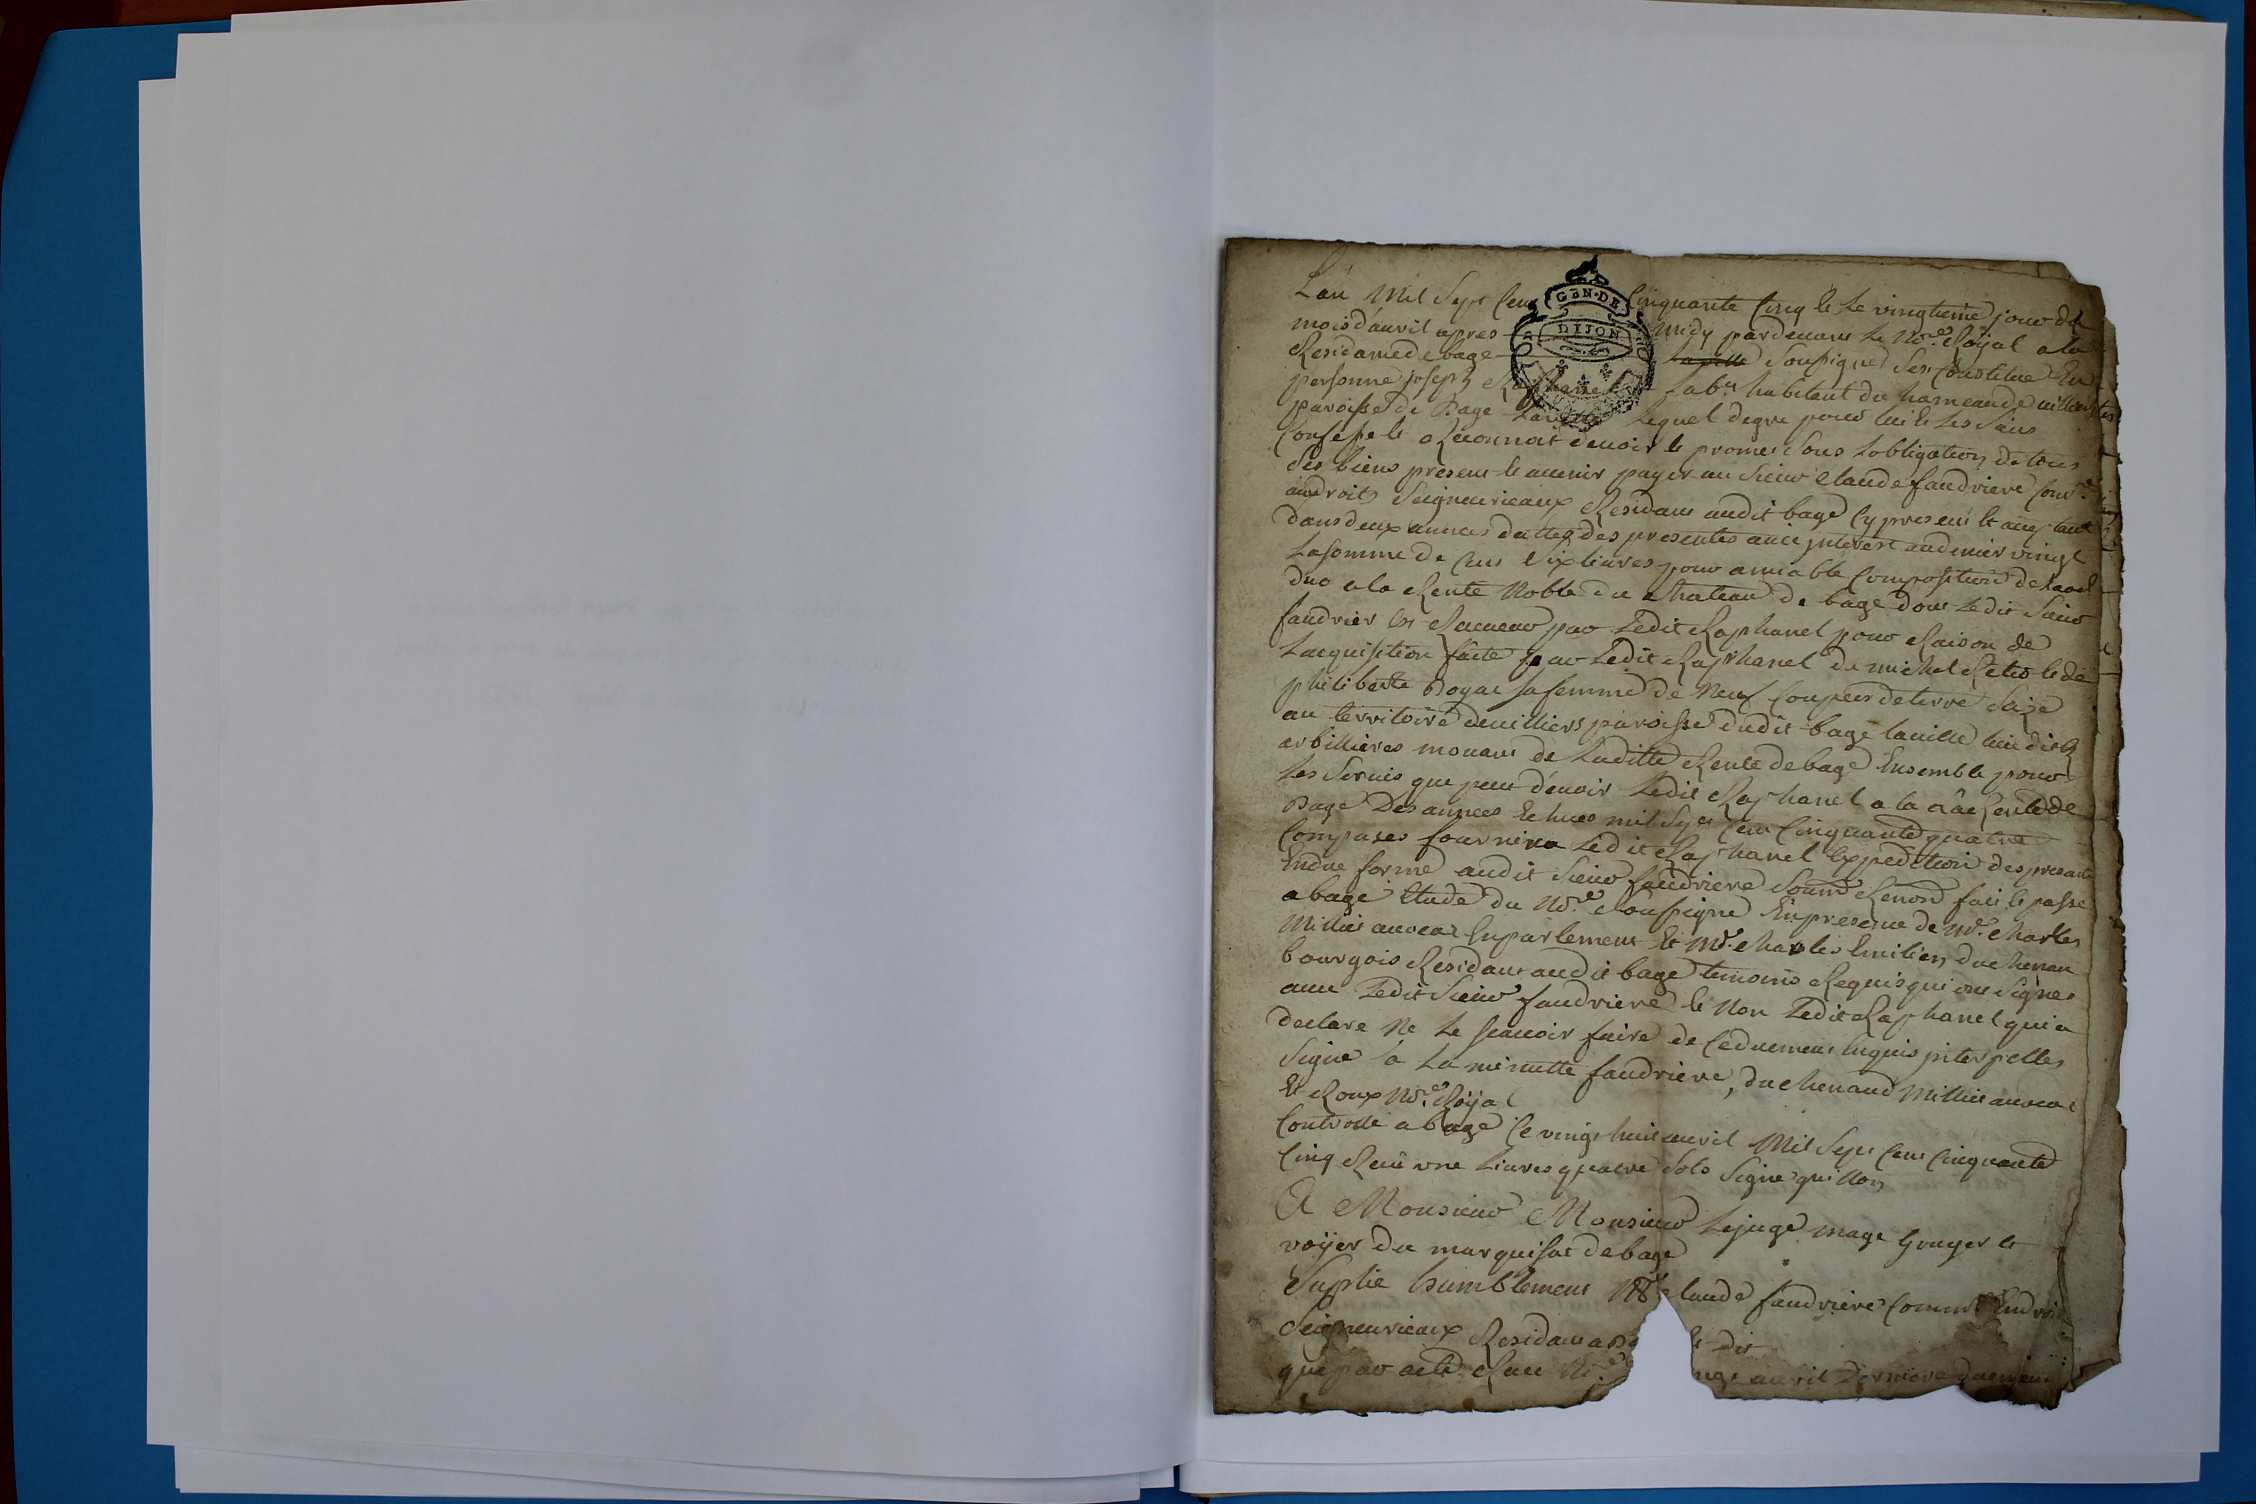 L'an Mil Sept Cent Cinquante Cinq & Le vingtieme jour du
mois d'auril apres midy pardeuant Le No.re Royal a la
Residance de bagé Soussigné Sest Constitué En
personne joseph Raphanel Lab.r habitant du hameau de uilliers
paroisse de Bagé La uille Lequel degré pour lui & Les Siens
Confesse & Reconnoit deuoir & promet Sous Lobligation de tous
Ses biens present & auenir payer au Sieur Claude faudriere Com.re
aux droits Seigneurieaux Residant audit bagé Cy present & acceptant
dans deux années datteé des presentes auec jnterest au denier vingt
La somme de Cent Six liures pour amiable Composition de Laod
duo a la Rente Noble du Chateau de bagé dont Le dit Sieur
faudrier est par Ledit Raphanel pour Raison de
Lacquisition faite par Ledit Raphanel de michel & de
philiberte Boyat sa femme de Neuf Coupées de terre Size
au territoire deuilliers paroisse dudit bagé lauille lieu dit
arbillieres mouant de Laditte Rente de bagé Ensemble pour
Les Seruis que peut deuoir Ledit Raphanel a la Rente de
Bagé Des annees Echues mil Sept Cent Cinquante quatre
Compases fournira Ledit Raphanel Expedition des presante
Endue forme audit Sieur faudriere Soumd Renond fait & passé
a bagé Etude du No.re Soussigné En presence de M.e Charles
Millié auocat En parlement Et M.r Charles Emilien duchenau
bourgois Residant audit bagé temoins Requis qui ont Signes
auec Ledit Sieur faudriere & Non Ledit Raphanel qui a
declaré Ne Le scauoir faire de Ce duement Enquis jnterpelles
Signé à La minutte faudriere, duchenaud Millié auocat
Et Roux No.re Royal
Controllé a bagé Ce vingt huit auril Mil Sept Cent Cinquante
Cinq Receu vne Liures quatre Sols Signé quillon
A Monsieur Monsieur Le juge mage Gruyer &
voÿer du marquisat de bagé
Suplie humblement Claude faudriere Comm.re Endroi
Seigneurieaux Residant a & dit
que par acte Receu auril Derniere duement
GEN. DE
DIJON